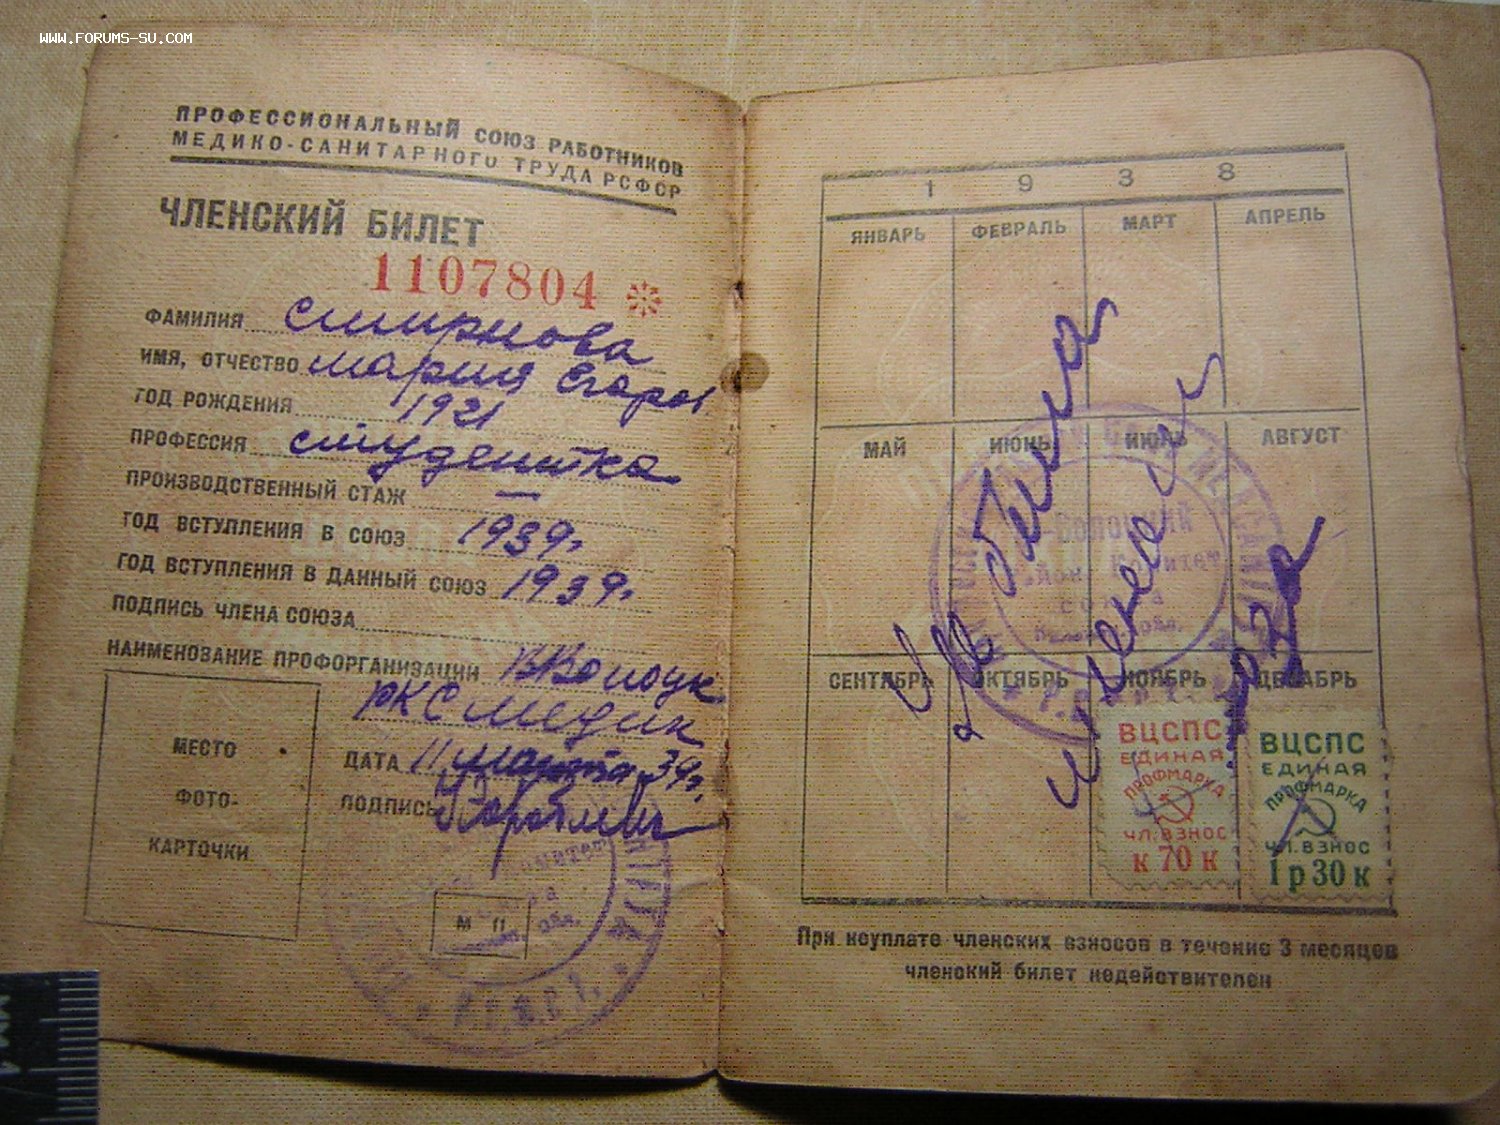 WWW.FORUMS-SU.COM
ПРОФЕССИОНАЛЬНЫЙ СОЮЗ РАБОТНИКОВ
МЕДИКО-САНИТАРНОГО ТРУДА РСФСР
ЧЛЕНСКИЙ БИЛЕТ
1107804
ФАМИЛИЯ Смирнова
ИМЯ, ОТЧЕСТВО Мария Егоров
ГОД РОЖДЕНИЯ 1921
ПРОФЕССИЯ студентка
ПРОИЗВОДСТВЕННЫЙ СТАЖ —
ГОД ВСТУПЛЕНИЯ В СОЮЗ 1939г.
ГОД ВСТУПЛЕНИЯ В ДАННЫЙ СОЮЗ 1939г.
ПОДПИСЬ ЧЛЕНА СОЮЗА
НАИМЕНОВАНИЕ ПРОФОРГАНИЗАЦИИ
РКС Медик
ДАТА 11 марта 39г.
ПОДПИСЬ
МЕСТО
ФОТО-
КАРТОЧКИ
М П
1938
ЯНВАРЬ ФЕВРАЛЬ МАРТ АПРЕЛЬ
МАЙ ИЮНЬ ИЮЛЬ АВГУСТ
СЕНТЯБРЬ ОКТЯБРЬ НОЯБРЬ ДЕКАБРЬ
ВЦСПС
ЕДИНАЯ
ПРОФМАРКА
ЧЛ. ВЗНОС
К 70 К
ВЦСПС
ЕДИНАЯ
ПРОФМАРКА
ЧЛ. ВЗНОС
1 р 30 к
При неуплате членских взносов в течение 3 месяцев
членский билет недействителен